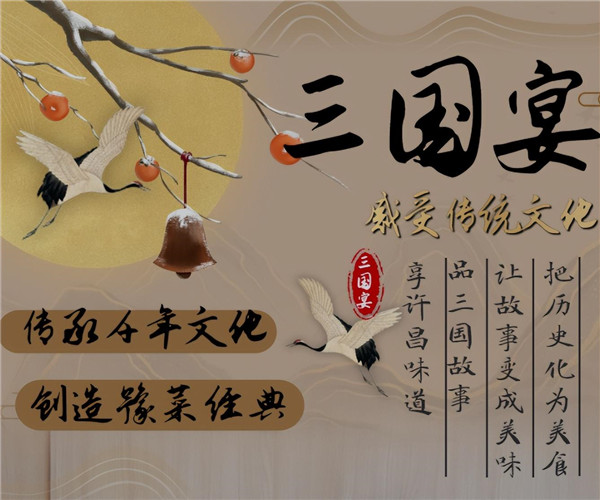 三国宴
感受传统文化
三国宴
把历史化为美食
让故事变成美味
品三国故事
享许昌味道
传承千年文化
创造豫菜经典